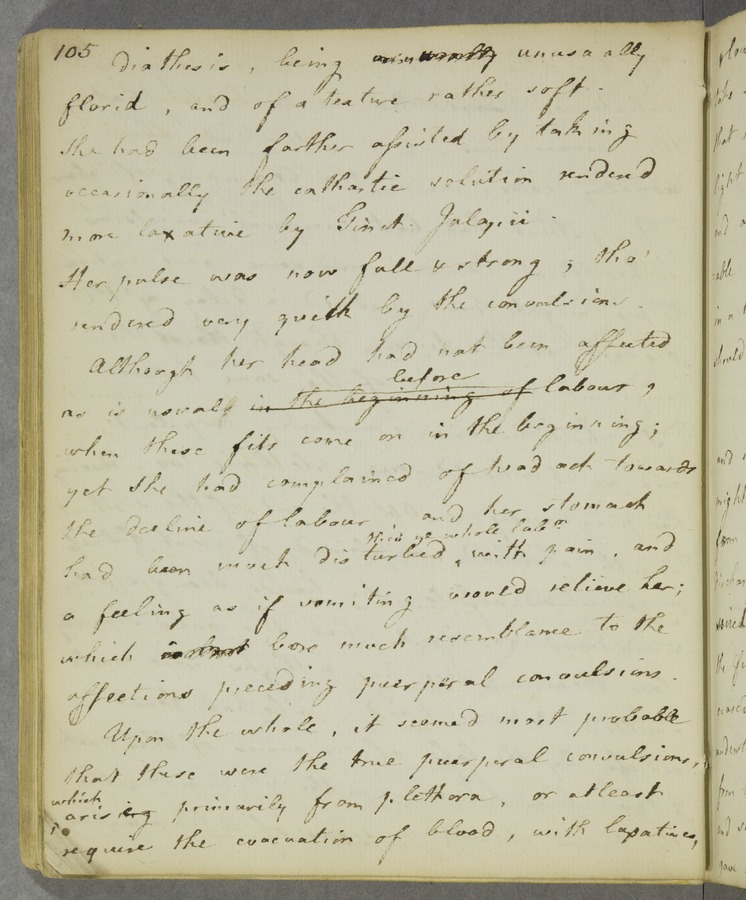 105
diathesis, being unusually
florid, and of a texture rather soft.
She had been farther assisted by taking
occasionally the cathartic solution rendered
more laxative by Tinct. Jalapii.
Her pulse was now full & strong; tho'
rendered very quick by the convulsions.
Although her head had not been affected
before
as is usual in the beginning of labour,
when these fits come on in the beginning;
yet she had complained of head ach towards
the decline of labour and her stomach
thro' ye whole labr
had been much disturbed, with pain, and
a feeling as if vomiting would relieve her;
which bore much resemblance to the
affections preceding puerperal convulsions.
Upon the whole, it seemed most probable
that these were the true puerperal convulsions,
which
arising primarily from plethora, or at least
require the evacuation of blood, with laxatives,